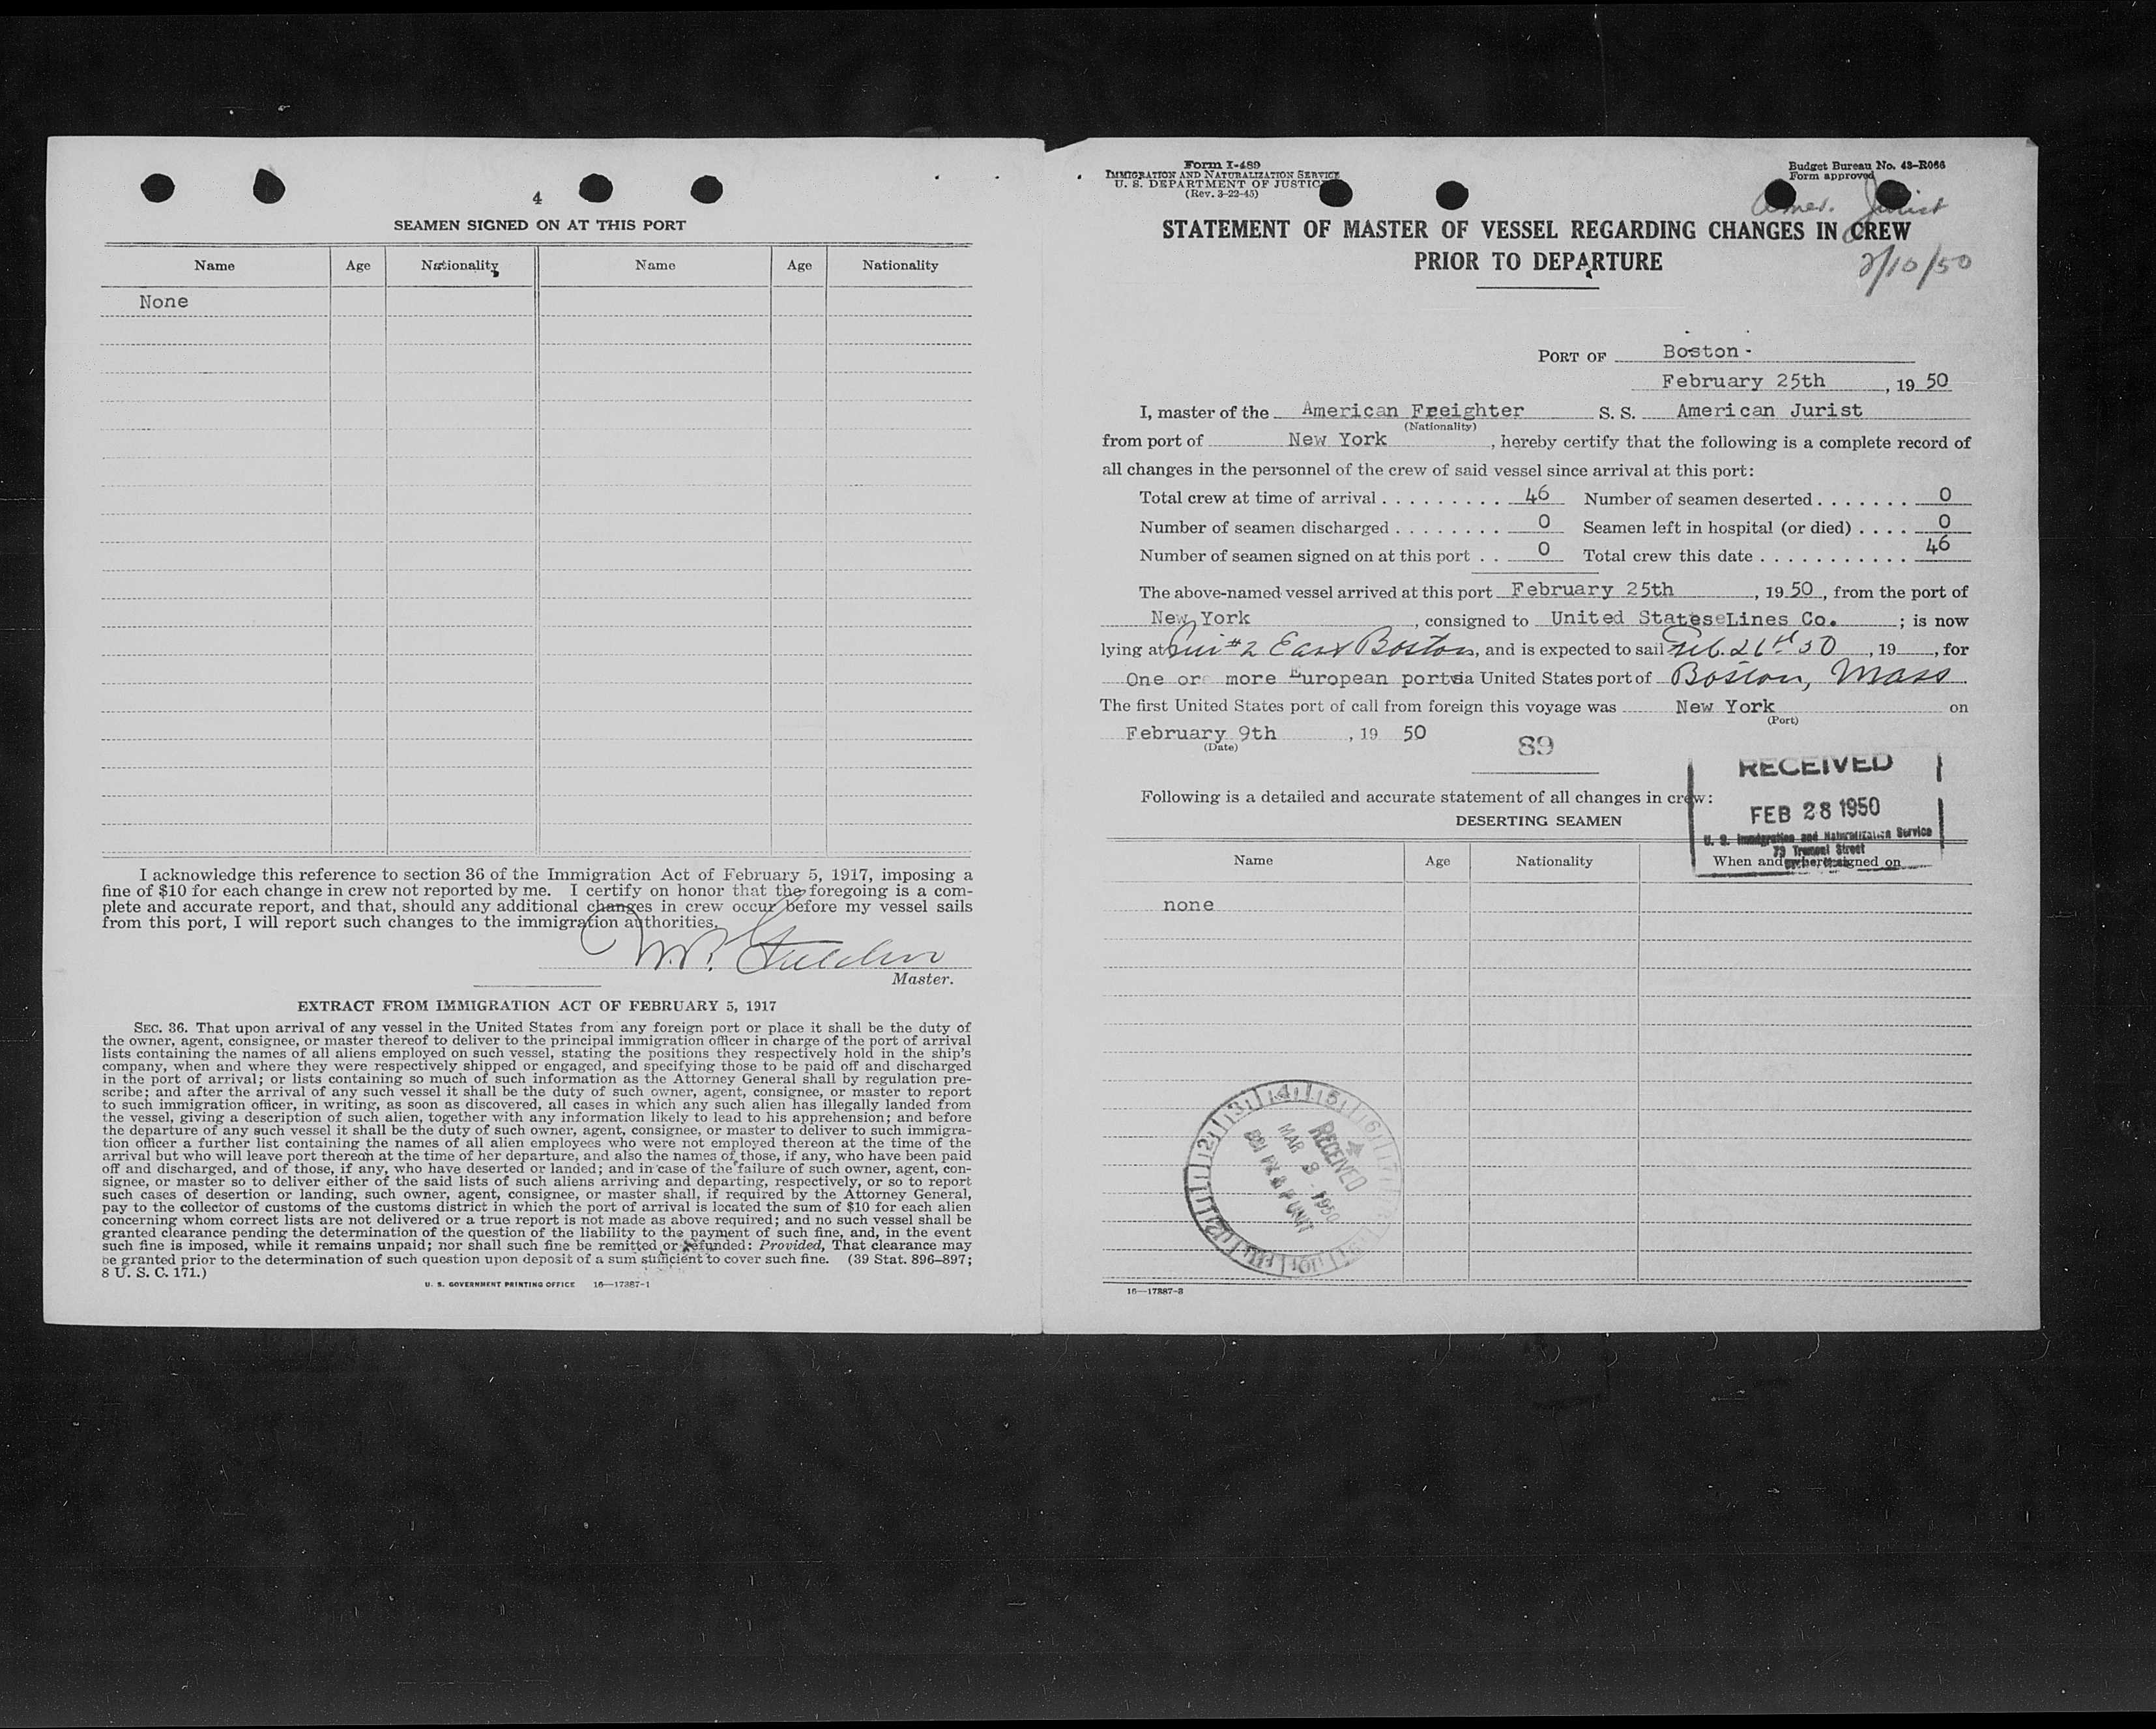 4
SEAMEN SIGNED ON AT THIS PORT
Name Age Nationality Name Age Nationality
None
I acknowledge this reference to section 36 of the Immigration Act of February 5, 1917, imposing a
fine of $10 for each change in crew not reported by me. I certify on honor that the foregoing is a com-
plete and accurate report, and that, should any additional changes in crew occur before my vessel sails
from this port, I will report such changes to the immigration authorities.
Master.
EXTRACT FROM IMMIGRATION ACT OF FEBRUARY 5, 1917
SEC. 36. That upon arrival of any vessel in the United States from any foreign port or place it shall be the duty of
the owner, agent, consignee, or master thereof to deliver to the principal immigration officer in charge of the port of arrival
lists containing the names of all aliens employed on such vessel, stating the positions they respectively hold in the ship's
company, when and where they were respectively shipped or engaged, and specifying those to be paid off and discharged
in the port of arrival; or lists containing so much of such information as the Attorney General shall by regulation pre-
scribe; and after the arrival of any such vessel it shall be the duty of such owner, agent, consignee, or master to report
to such immigration officer, in writing, as soon as discovered, all cases in which any such alien has illegally landed from
the vessel, giving a description of such alien, together with any information likely to lead to his apprehension; and before
the departure of any such vessel it shall be the duty of such owner, agent, consignee, or master to deliver to such immigra-
tion officer a further list containing the names of all alien employees who were not employed thereon at the time of the
arrival but who will leave port thereon at the time of her departure, and also the names of those, if any, who have been paid
off and discharged, and of those, if any, who have deserted or landed; and in case of the failure of such owner, agent, con-
signee, or master so to deliver either of the said lists of such aliens arriving and departing, respectively, or so to report
such cases of desertion or landing, such owner, agent, consignee, or master shall, if required by the Attorney General,
pay to the collector of customs of the customs district in which the port of arrival is located the sum of $10 for each alien
concerning whom correct lists are not delivered or a true report is not made as above required; and no such vessel shall be
granted clearance pending the determination of the question of the liability to the payment of such fine, and, in the event
such fine is imposed, while it remains unpaid; nor shall such fine be remitted or refunded: Provided, That clearance may
be granted prior to the determination of such question upon deposit of a sum sufficient to cover such fine. (39 Stat. 896–897;
8 U. S. C. 171.)
U. S. GOVERNMENT PRINTING OFFICE 16—17387-1
Form I-489
IMMIGRATION AND NATURALIZATION SERVICE
U. S. DEPARTMENT OF JUSTICE
(Rev. 3-22-45)
Budget Bureau No. 43-R066
Form approved
Amer. Jurist
STATEMENT OF MASTER OF VESSEL REGARDING CHANGES IN CREW
PRIOR TO DEPARTURE
2/10/50
PORT OF Boston
February 25th, 19 50
I, master of the American Freighter S. S. American Jurist
(Nationality)
from port of New York, hereby certify that the following is a complete record of
all changes in the personnel of the crew of said vessel since arrival at this port:
Total crew at time of arrival 46 Number of seamen deserted 0
Number of seamen discharged 0 Seamen left in hospital (or died) 0
Number of seamen signed on at this port 0 Total crew this date 46
The above-named vessel arrived at this port February 25th, 19 50, from the port of
New York, consigned to United States Lines Co.; is now
lying at #2 East Boston, and is expected to sail Feb. 26 50, 19, for
One or more European ports via United States port of Boston, Mass.
The first United States port of call from foreign this voyage was New York on
(Port)
February 9th, 19 50
(Date)
89
RECEIVED
FEB 28 1950
U. S. Immigration and Naturalization Service
73 Tremont Street
Following is a detailed and accurate statement of all changes in crew:
DESERTING SEAMEN
Name Age Nationality When and where signed on
none
RECEIVED
MAR 3 - 1950
16—17387-3